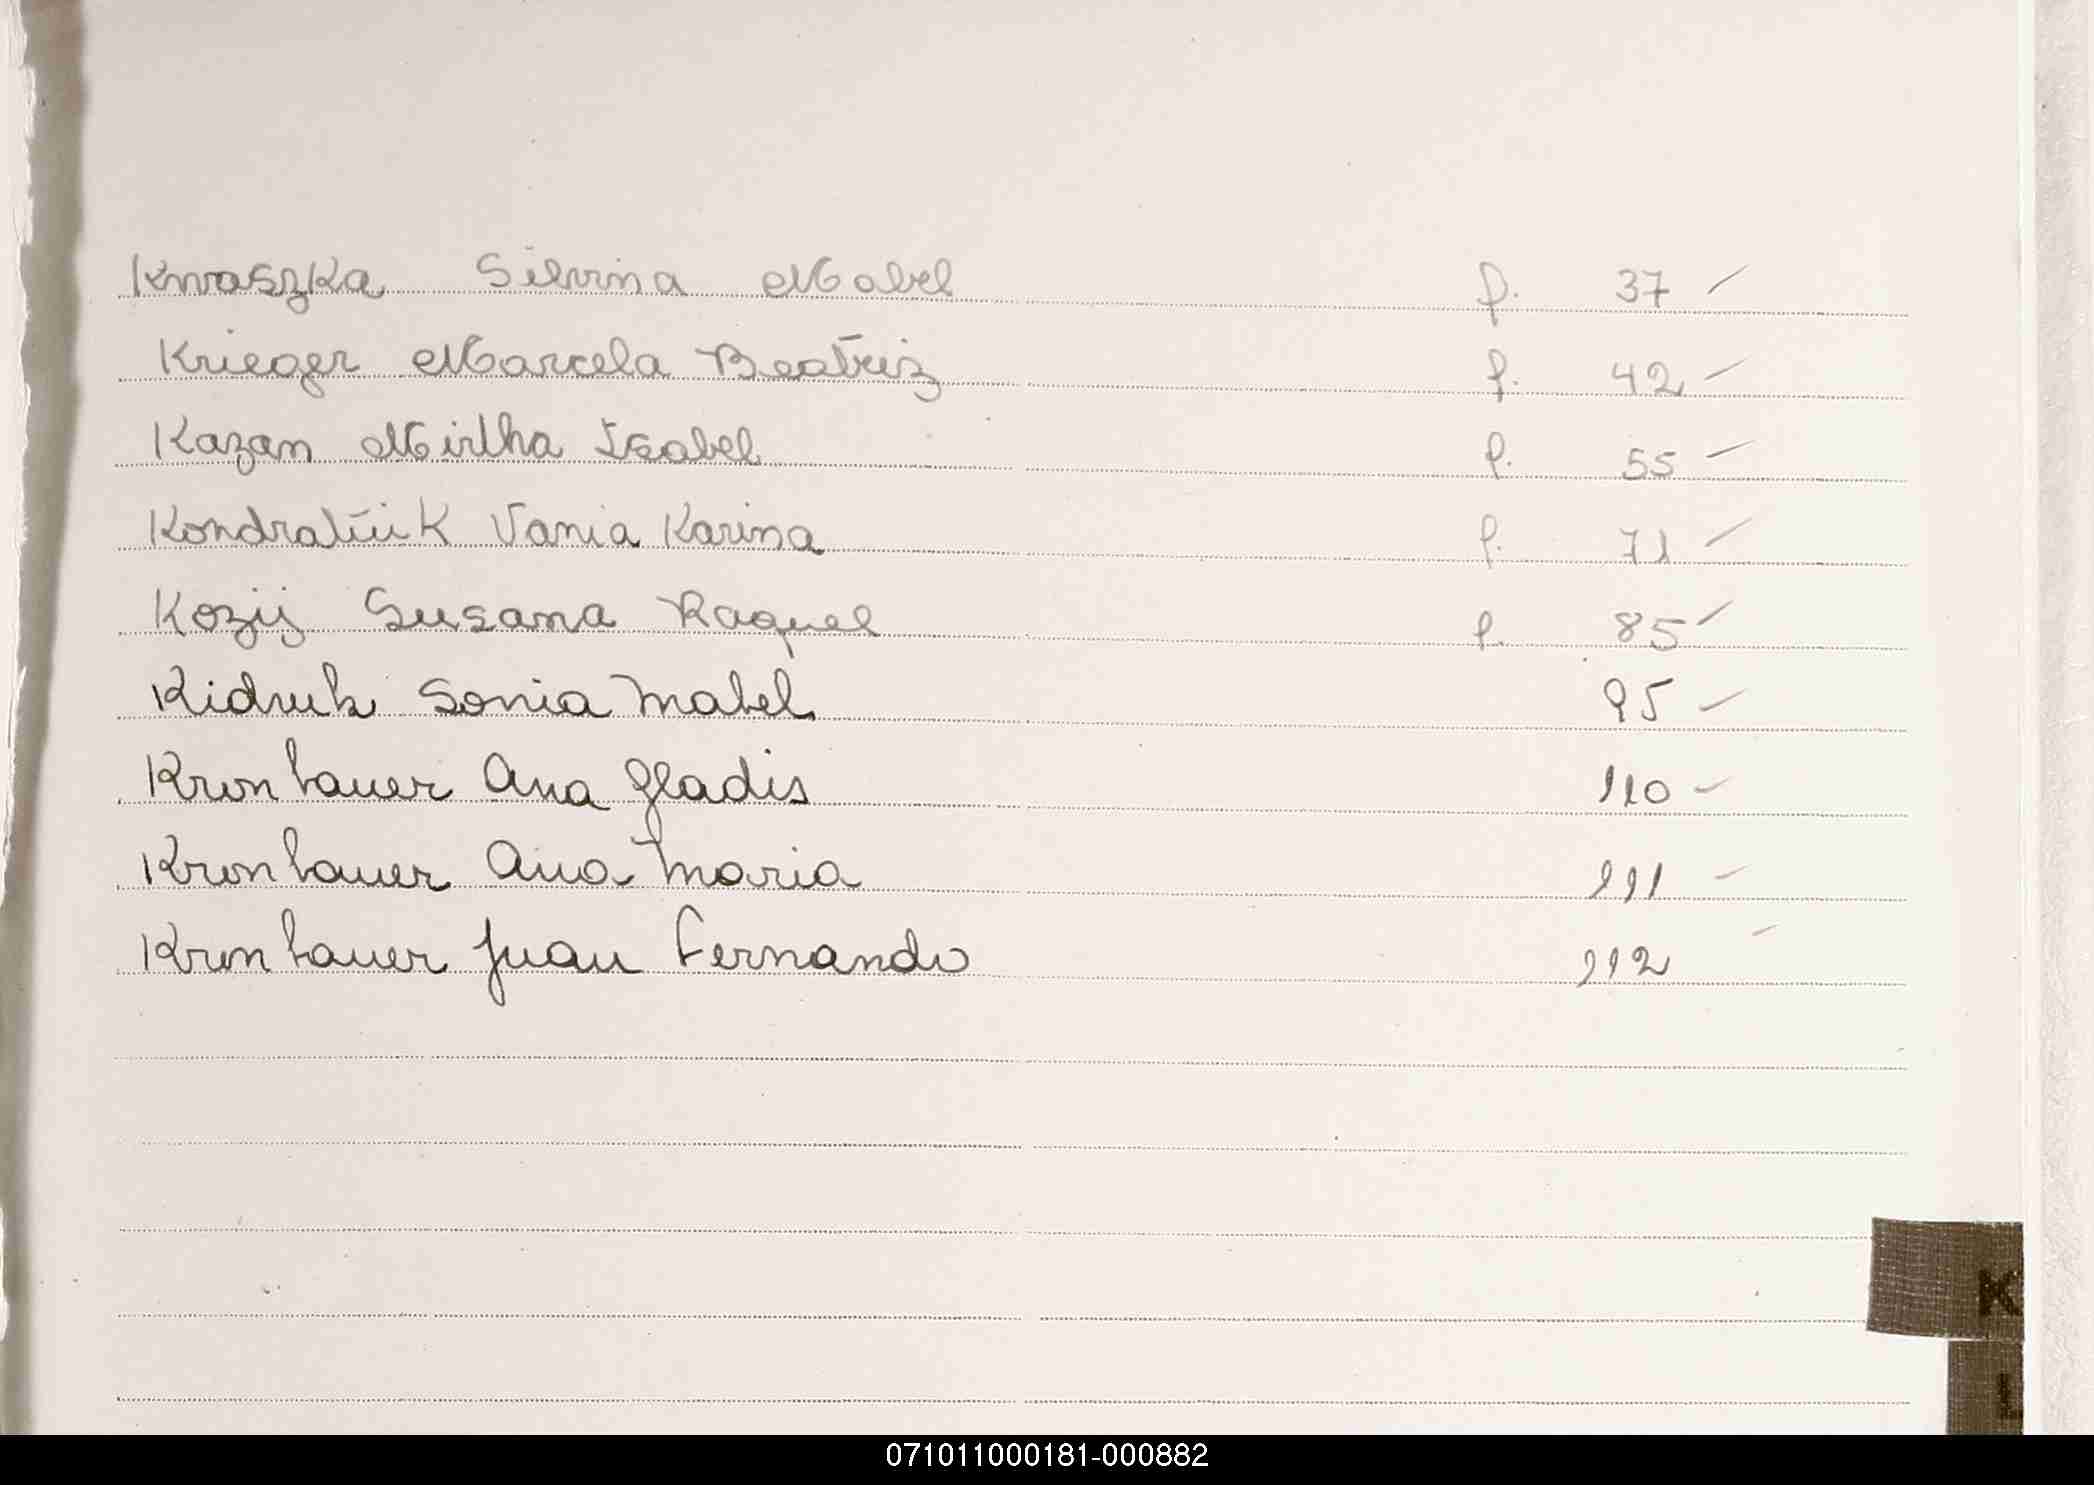 Kwaszka Silvina Mabel f. 37
Krieger Marcela Beatriz f. 42
Kazan Mirtha Isabel f. 55
Kondratiuk Vania Karina f. 71
Kozij Susana Raquel f. 85
Kidruk Sonia Mabel 95
Kronbauer Ana Gladis 110
Kronbauer Ana Maria 111
Kronbauer Juan Fernando 112
K
L
071011000181-000882